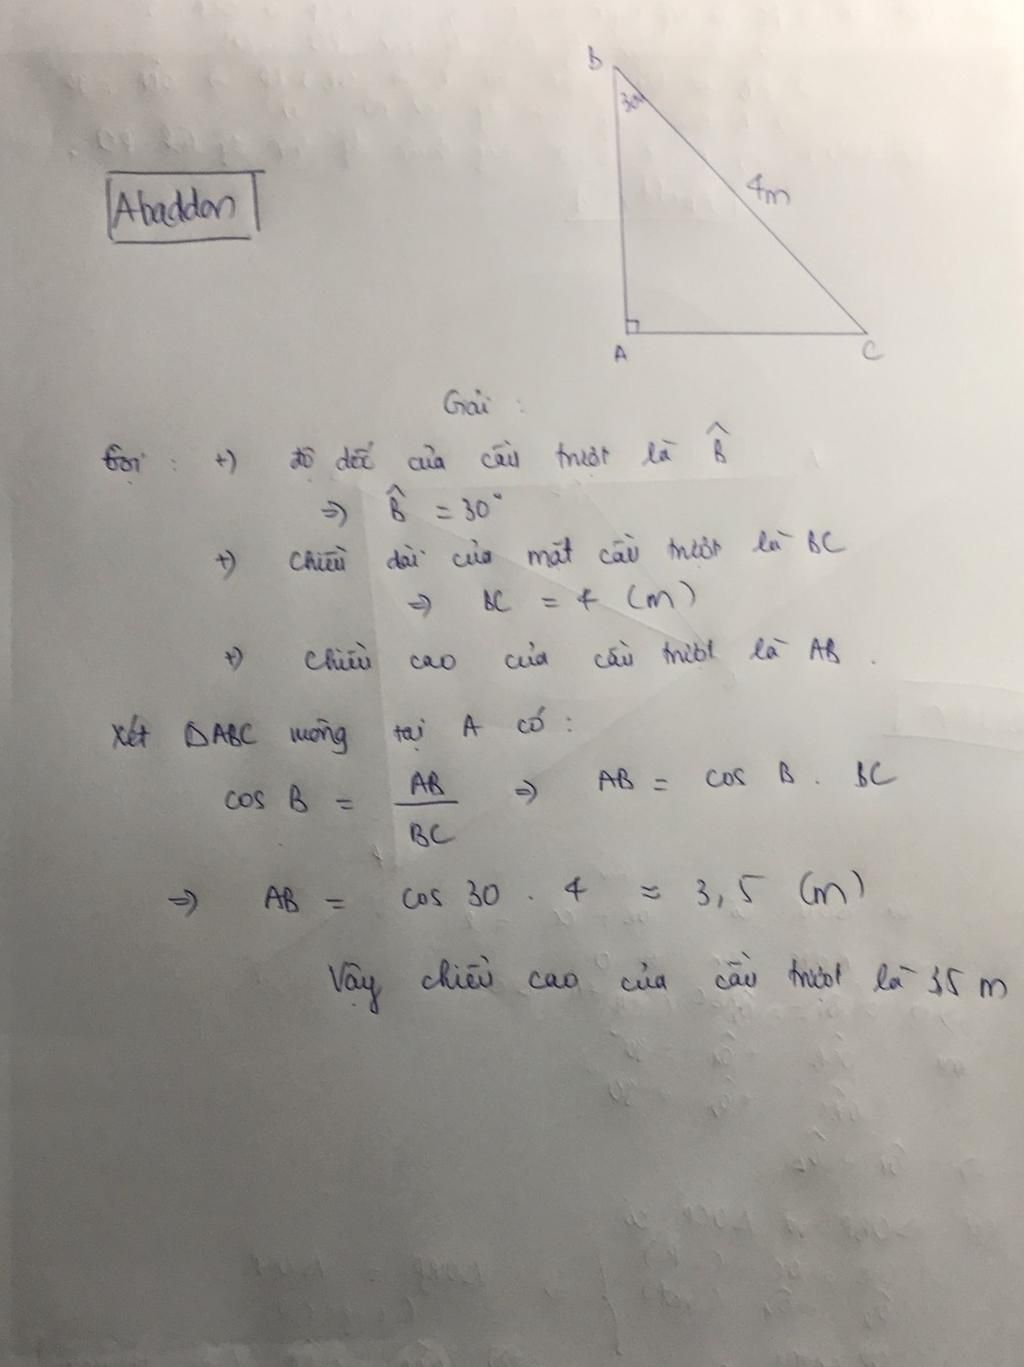 B
30°
4m
Abaddon
A
C
Giải :
Gọi : +) độ dốc của cầu trượt là B̂
=> B̂ = 30°
+) chiều dài của mặt cầu trượt là BC
=> BC = 4 (m)
+) chiều cao của cầu trượt là AB .
Xét ΔABC vuông tại A có :
cos B = AB / BC => AB = cos B . BC
=> AB = cos 30 . 4 ≈ 3,5 (m)
Vậy chiều cao của cầu trượt là 3,5 m